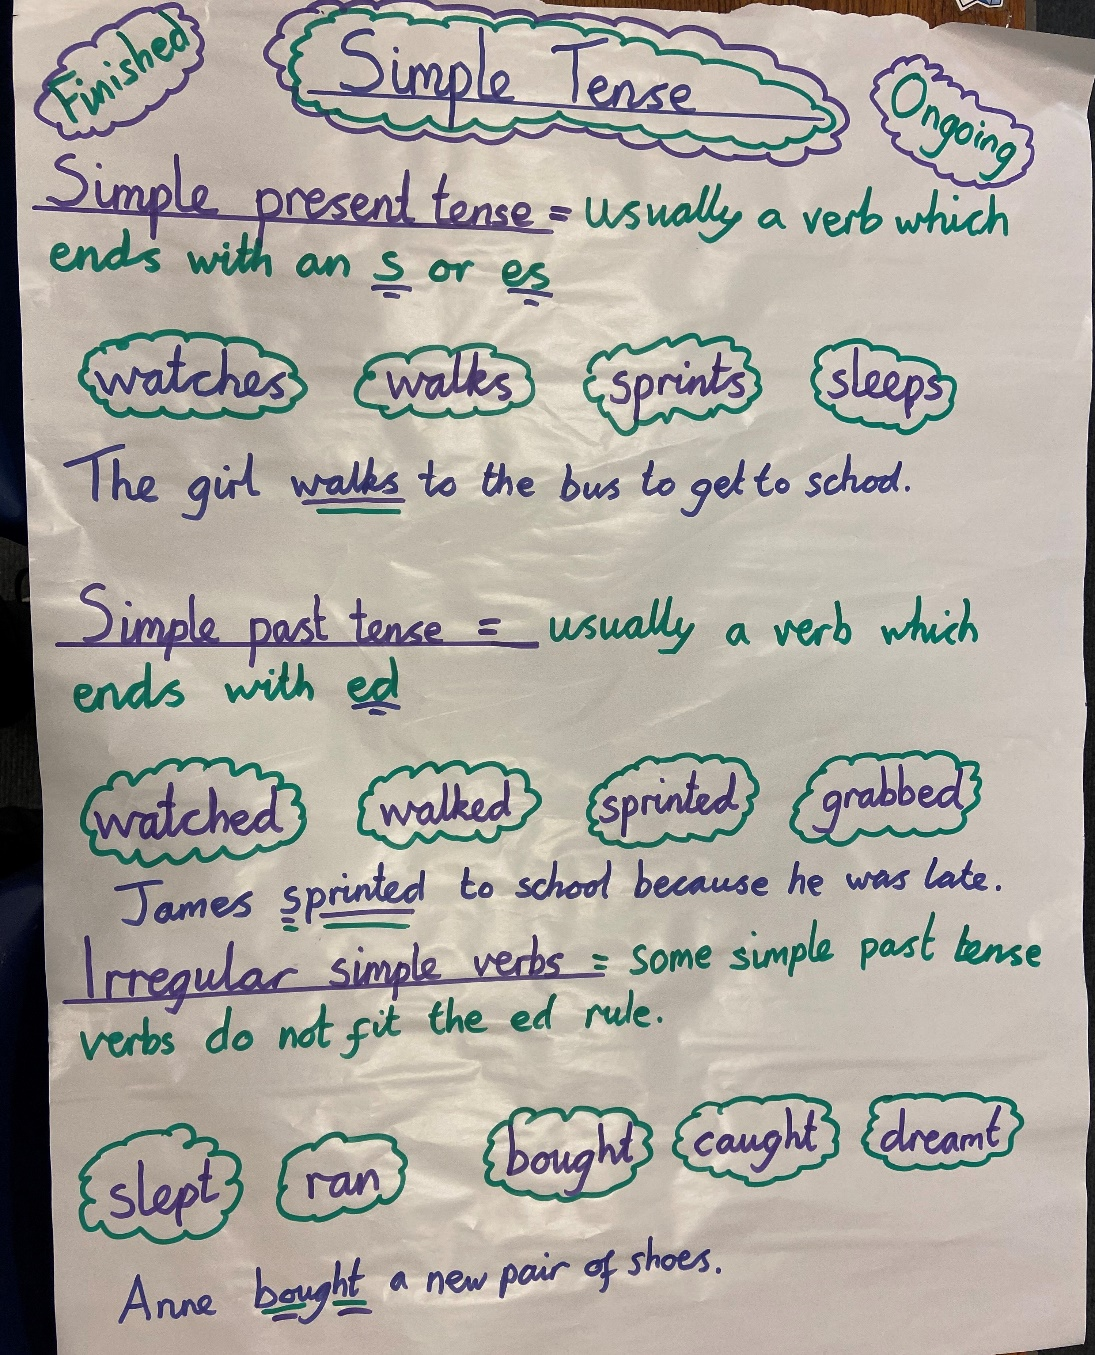 Finished
Simple Tense
Ongoing
Simple present tense = usually a verb which
ends with an s or es
watches walks sprints sleeps
The girl walks to the bus to get to school.
Simple past tense = usually a verb which
ends with ed
watched walked sprinted grabbed
James sprinted to school because he was late.
Irregular simple verbs = some simple past tense
verbs do not fit the ed rule.
slept ran bought caught dreamt
Anne bought a new pair of shoes.